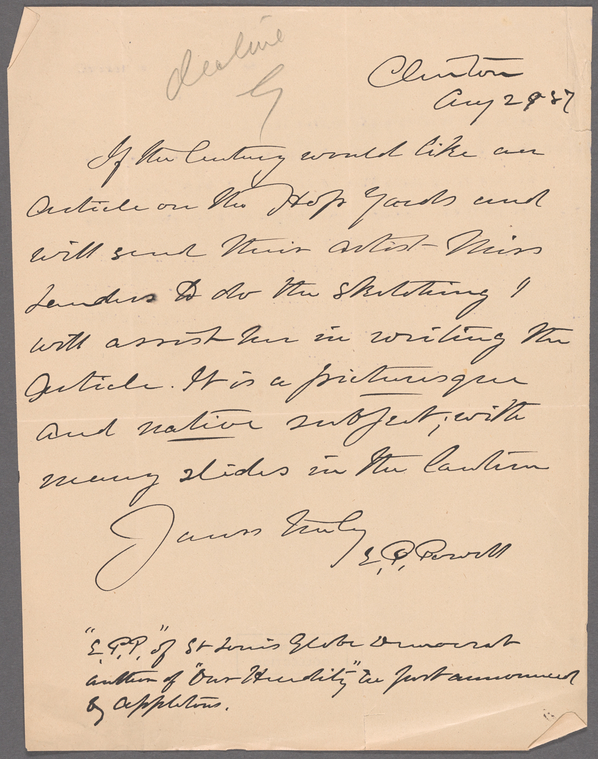 decline
G
Clinton
Aug 29 87
If the Century would like an
article on the Hop Yards and
will send their artist Miss
Landers to do the sketching I
will assist her in writing the
article. It is a picturesque
and native subject; with
many slides in the lantern
Yours truly
E. P. Powell
"E.P.P." of St Louis Globe Democrat
author of "Our Heredity" &c just announced
by Appletons.